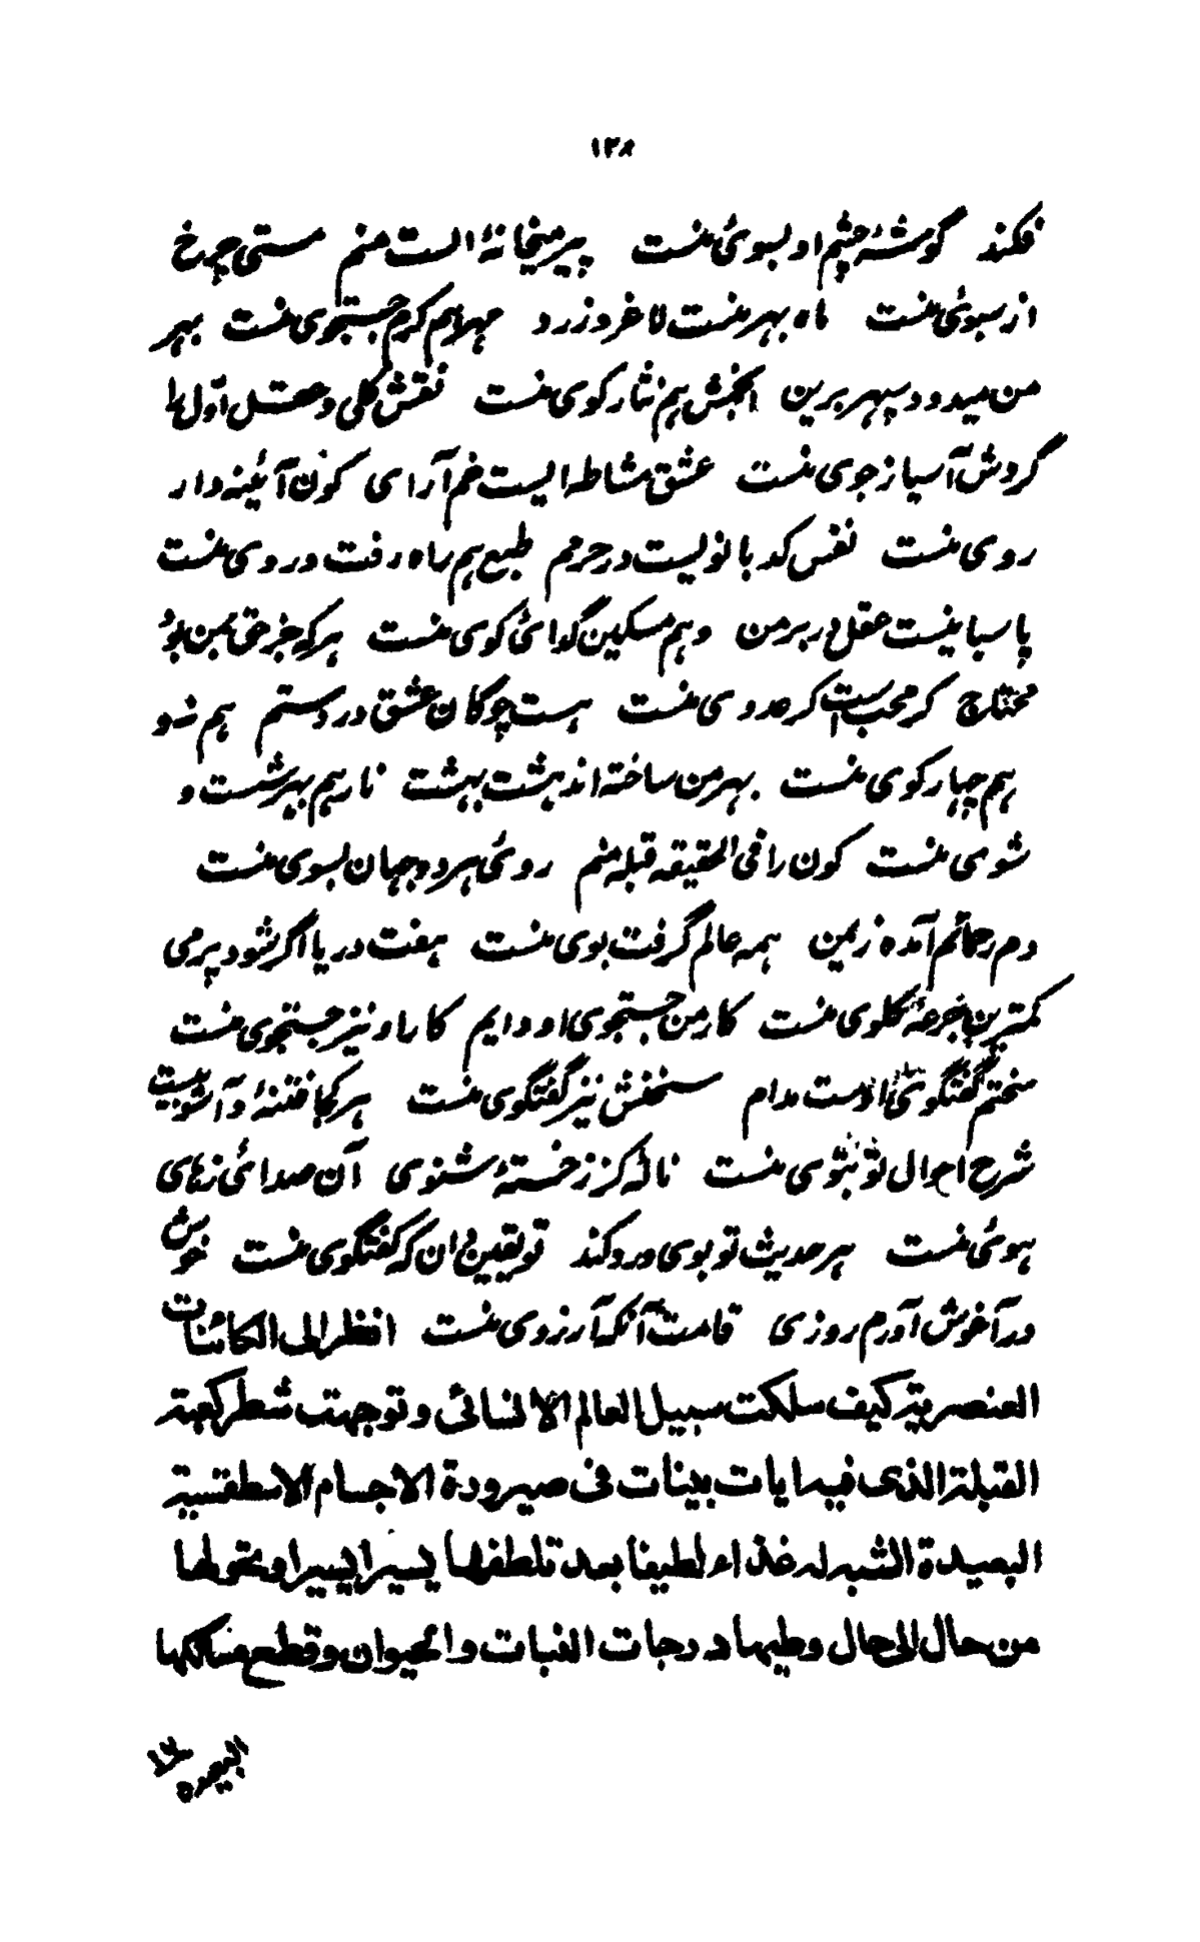 ۱۳۸
فکند گوشهٔ چشم او بسوئ منست پیر میخانهٔ الست منم مستی چرخ
از سبوئی منست ماه بهر منست لاغر و زرد مهر هم گرم جستجوی منست بهر
من میدود سپهر برین انجمش هم نثار کوی منست نقش کلی و عقل اول را
گردش آسیا ز جوی منست عشق مشاطه ایست خم آرای کون آئینه دار
روی منست نفس کدبانویست در حرمم طبع هم راه رفت و روی منست
پاسبانیست عقل بر در من وهم مسکین گدائ کوی منست هر که جز حق بمن بود
محتاج گر محب است گر عدوی منست هست چوگان عشق در دستم هم
هم چهار کوی منست بهر من ساخته اند هشت بهشت نار هم بهر شست و
شوی منست کون را فی الحقیقه قبله منم روئ هر دو جهان بسوی منست
دم رحمانم آمده ز یمن همه عالم گرفت بوی منست هفت دریا اگر شود پر می
کمترین جرعهٔ گلوی منست کار من جستجوی او دایم کار او نیز جستجوی منست
سخنم گفتگوی اوست مدام سخنش نیز گفتگوی منست هر کجا فتنهٔ و آشوبیست
شرح احوال تو بتوی منست نالهٔ کز ز خستهٔ شنوی آن صدائ ز های
هوئی منست هر حدیث تو بوی درد کند تو یقین دان که گفتگوی منست خوش
در آغوش آورم روزی قامت آنکه آرزوی منست انظر الی الکائنات
العنصریة کیف سلکت سبیل العالم الانسانی و توجهت شطر کعبة
القبلة الذی فیه ایات بینات فی صیرورة الاجسام الاسطقسیة
البعیدة الشبه له غذاء لطیفا بعد تلطفها یسیرا یسیرا و تحولها
من حال الی حال و طیها درجات النبات و الحیوان و قطع مسالکها
البعیدة ۱۳